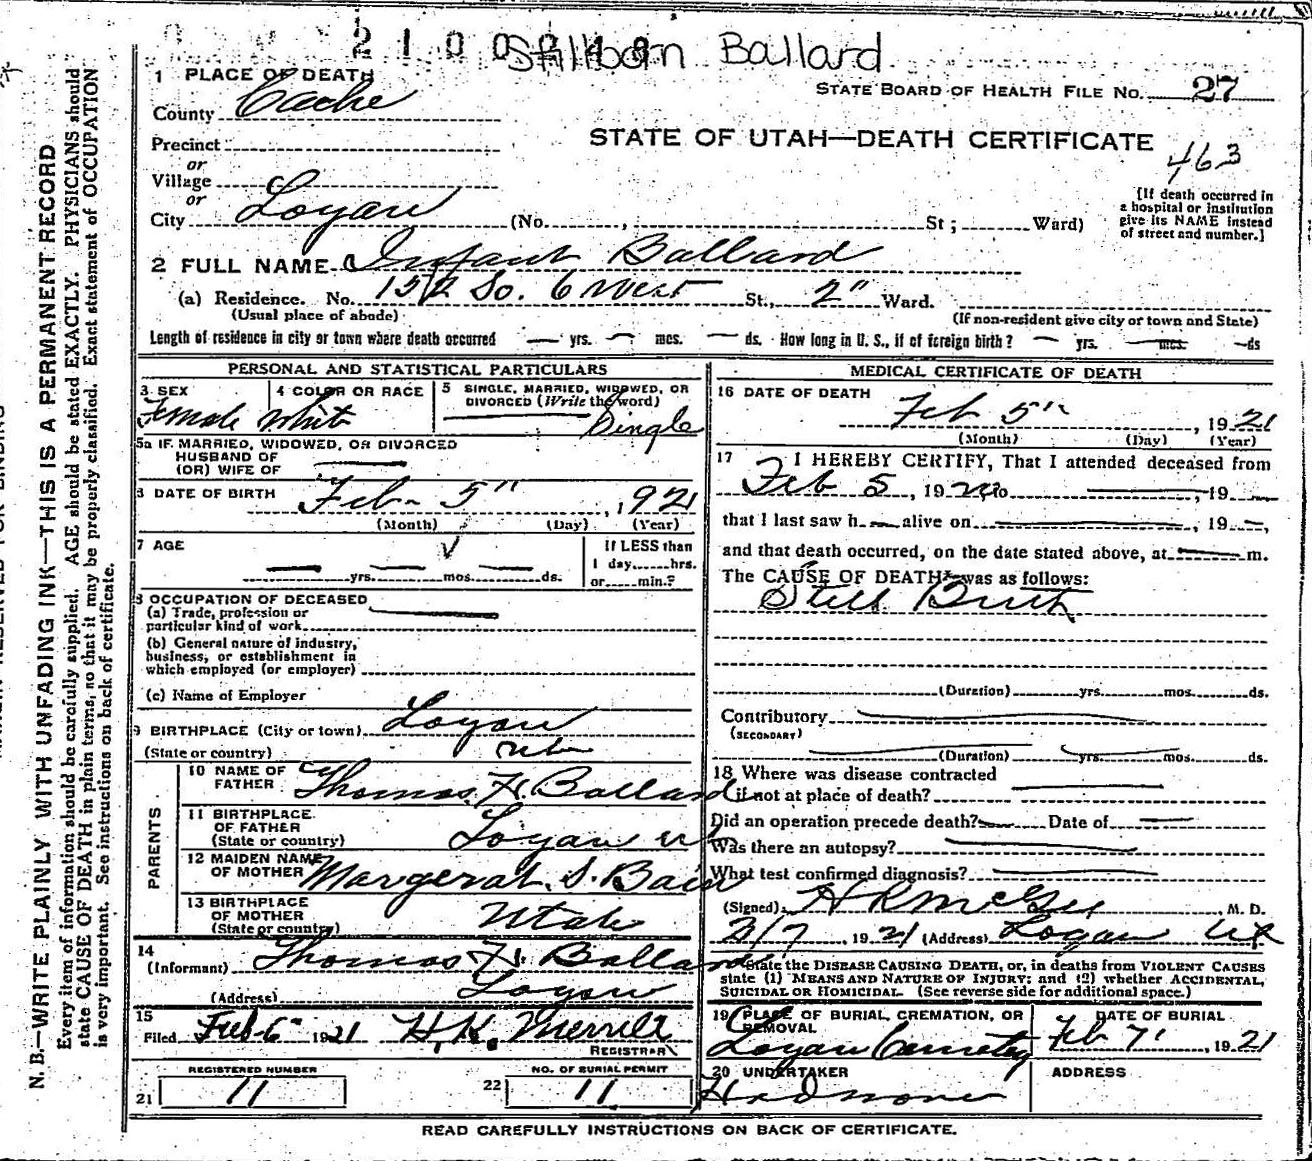 Stillborn Ballard
1 PLACE OF DEATH
STATE BOARD OF HEALTH FILE No. 27
County Cache
STATE OF UTAH—DEATH CERTIFICATE
463
Precinct
or
Village
or
City Logan (No. , St; Ward)
[If death occurred in
a hospital or institution
give its NAME instead
of street and number.]
2 FULL NAME Infant Ballard
(a) Residence. No. 152 So. 6 West St., 2" Ward.
(Usual place of abode)
(If non-resident give city or town and State)
Length of residence in city or town where death occurred — yrs. — mos. — ds. How long in U. S., if of foreign birth? — yrs. — mos. — ds
PERSONAL AND STATISTICAL PARTICULARS
3 SEX
Female
4 COLOR OR RACE
White
5 SINGLE, MARRIED, WIDOWED, OR
DIVORCED (Write the word)
Single
5a IF MARRIED, WIDOWED, OR DIVORCED
HUSBAND OF
(OR) WIFE OF
6 DATE OF BIRTH Feb- 5" , 1921
(Month) (Day) (Year)
7 AGE
— yrs. — mos. — ds.
If LESS than
1 day, hrs.
or min.?
8 OCCUPATION OF DECEASED
(a) Trade, profession or
particular kind of work
(b) General nature of industry,
business, or establishment in
which employed (or employer)
(c) Name of Employer
9 BIRTHPLACE (City or town) Logan
(State or country) Utah
PARENTS
10 NAME OF
FATHER Thomas H. Ballard
11 BIRTHPLACE
OF FATHER
(State or country) Logan Ut
12 MAIDEN NAME
OF MOTHER Margerat. S. Bain
13 BIRTHPLACE
OF MOTHER
(State or country) Utah
14
(Informant) Thomas H. Ballard
(Address) Logan
15
Filed Feb-6" 1921 H. K. Merrill
REGISTRAR
REGISTERED NUMBER
21 11
NO. OF BURIAL PERMIT
22 11
MEDICAL CERTIFICATE OF DEATH
16 DATE OF DEATH
Feb 5" , 1921
(Month) (Day) (Year)
17 I HEREBY CERTIFY, That I attended deceased from
Feb 5 , 19 to , 19
that I last saw h — alive on , 19 —,
and that death occurred, on the date stated above, at — m.
The CAUSE OF DEATH* was as follows:
Still Birth
(Duration) yrs. mos. ds.
Contributory
(SECONDARY)
(Duration) yrs. mos. ds.
18 Where was disease contracted
if not at place of death?
Did an operation precede death? — Date of —
Was there an autopsy?
What test confirmed diagnosis?
(Signed) H R McGee , M. D.
2/7 , 1921 (Address) Logan Ut
*State the DISEASE CAUSING DEATH, or, in deaths from VIOLENT CAUSES
state (1) MEANS AND NATURE OF INJURY; and (2) whether ACCIDENTAL,
SUICIDAL OR HOMICIDAL. (See reverse side for additional space.)
19 PLACE OF BURIAL, CREMATION, OR
REMOVAL
Logan Cemetey
DATE OF BURIAL
Feb 7' , 1921
20 UNDERTAKER
ADDRESS
READ CAREFULLY INSTRUCTIONS ON BACK OF CERTIFICATE.
N. B.—WRITE PLAINLY WITH UNFADING INK—THIS IS A PERMANENT RECORD
Every item of information should be carefully supplied. AGE should be stated EXACTLY. PHYSICIANS should
state CAUSE OF DEATH in plain terms, so that it may be properly classified. Exact statement of OCCUPATION
is very important. See instructions on back of certificate.